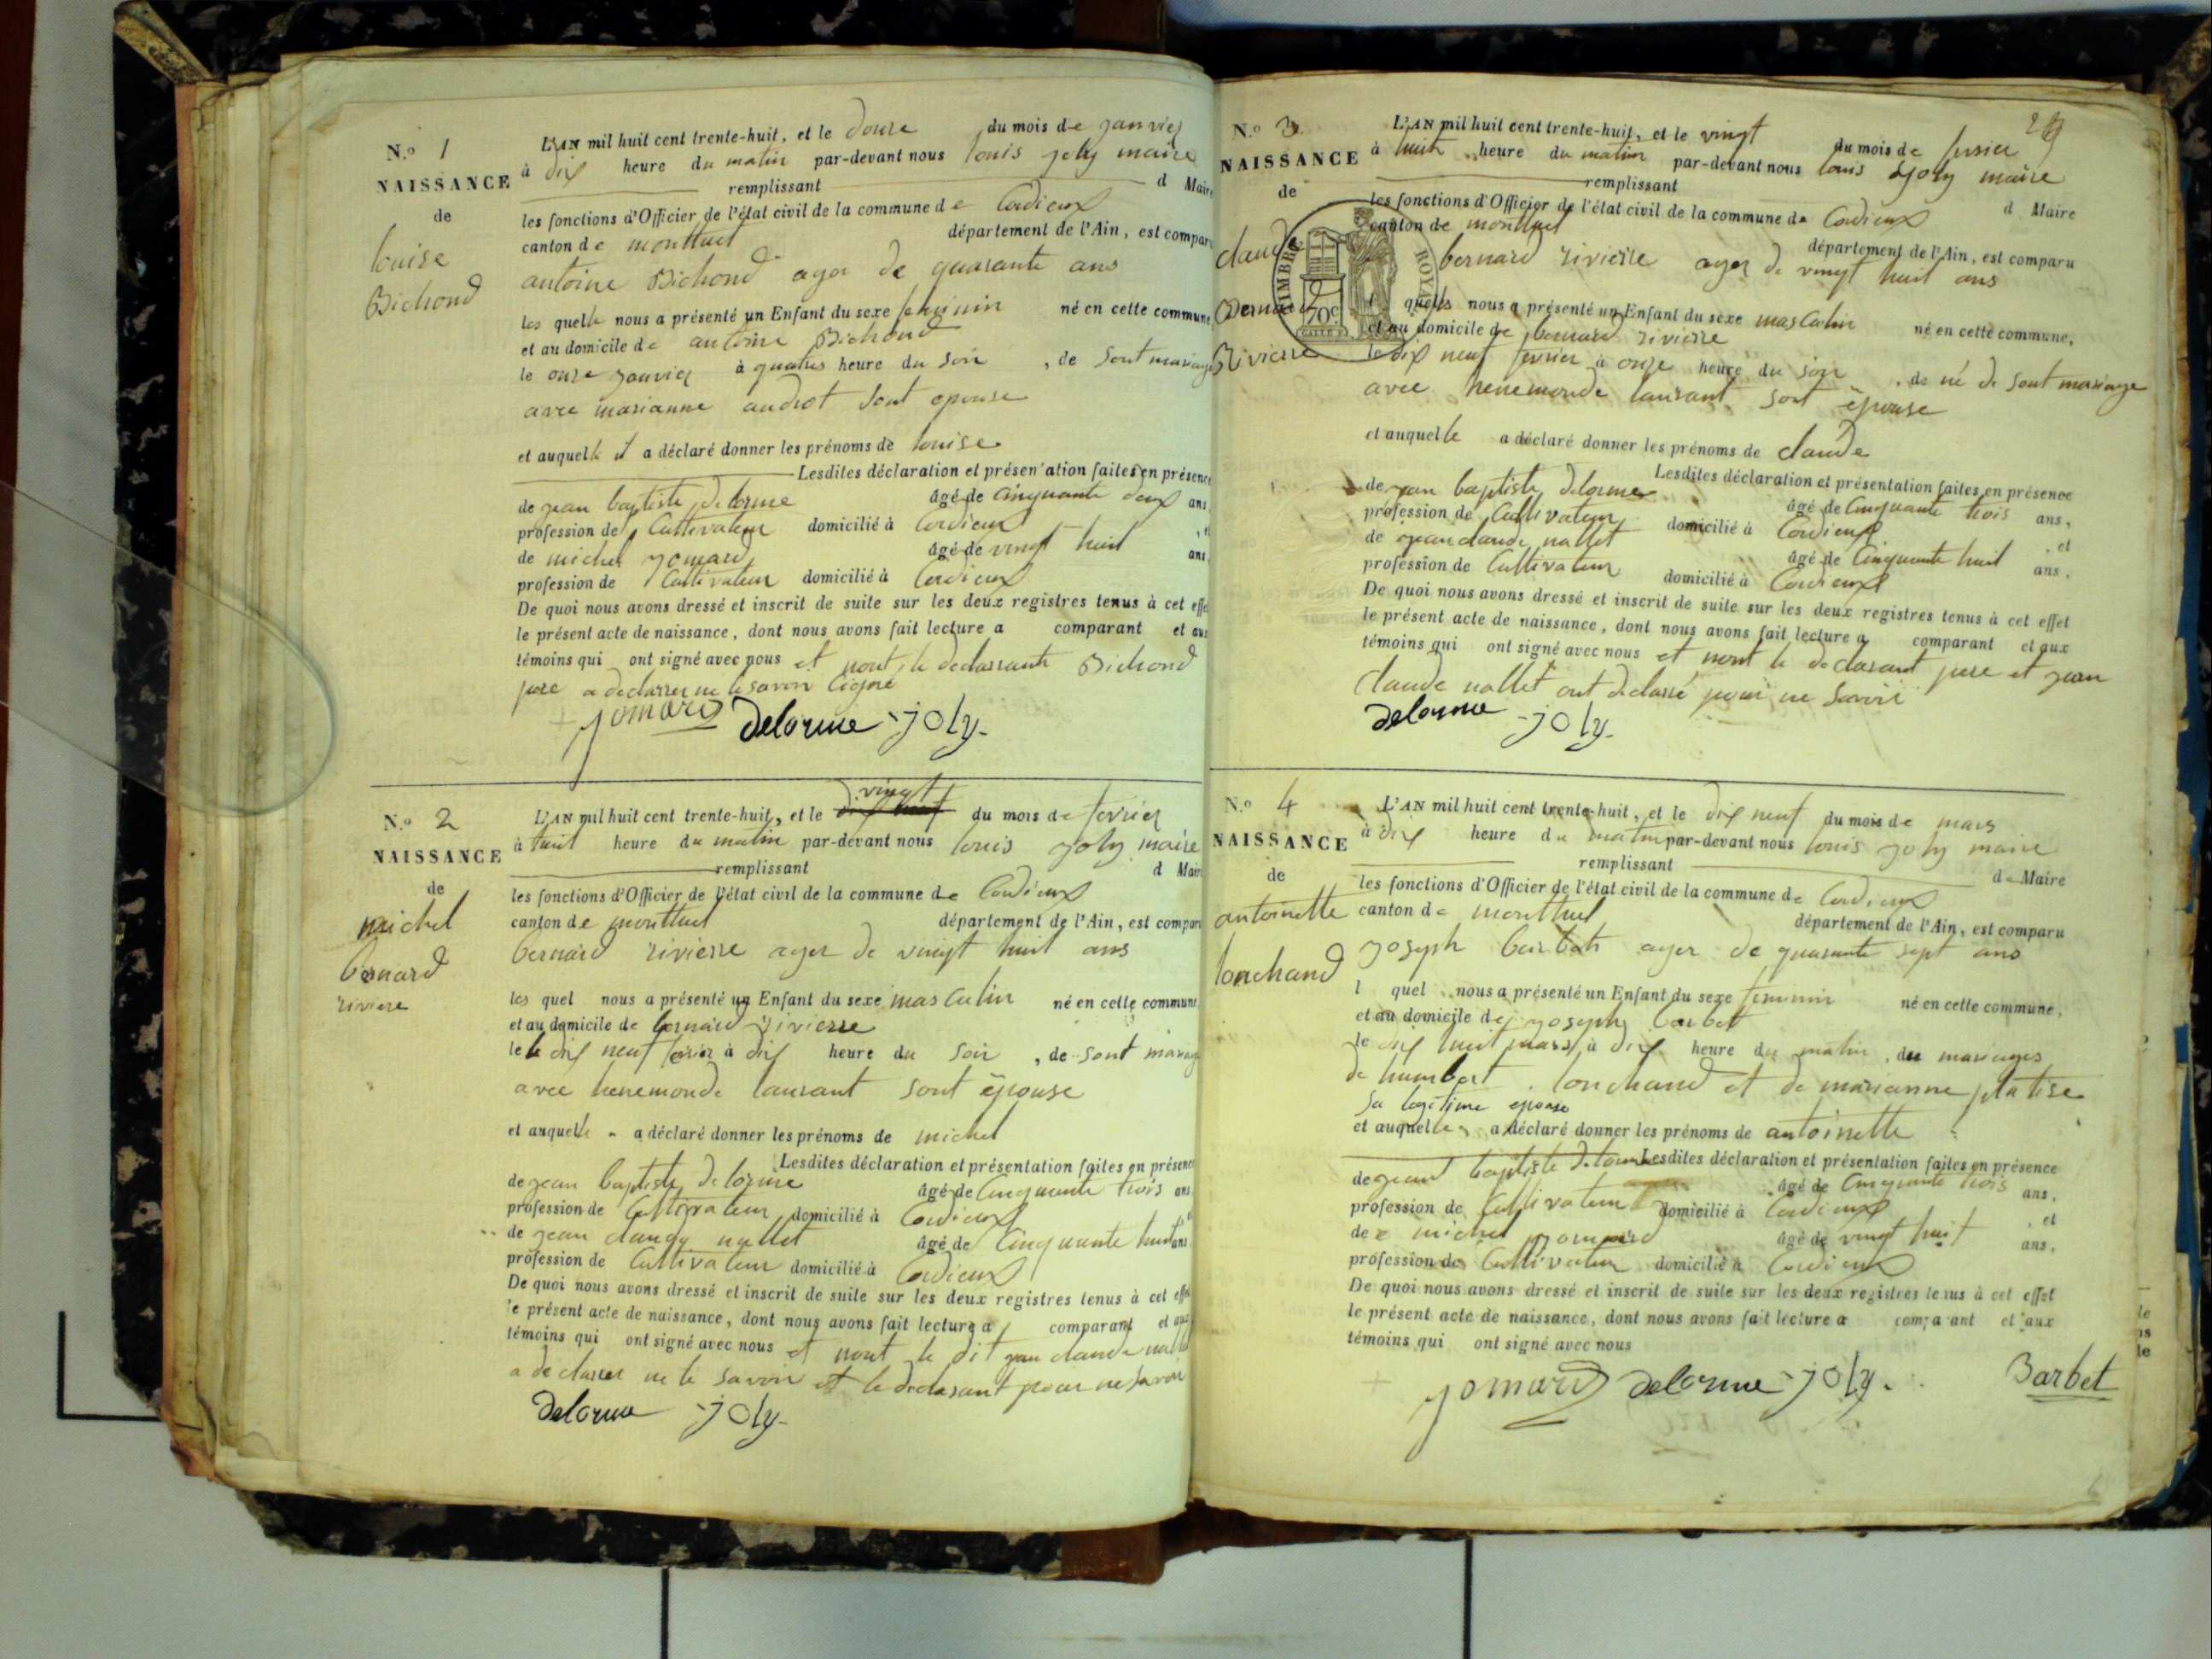 N.o 1
NAISSANCE
de
louise
Bichond
L'AN mil huit cent trente-huit, et le douse du mois de janvier
à dix heure du matin par-devant nous louis joly maire
remplissant d Maire
les fonctions d'Officier de l'état civil de la commune de Cordieux
canton de montluel département de l'Ain, est compar
antoine Bichond ager de quarante ans
les quelle nous a présenté un Enfant du sexe feminin né en cette commune
et au domicile de antoine Bichond
le onze janvier à quatres heure du soir , de sont mariage
avec marianne audrot sont epouse
et auquelle il a déclaré donner les prénoms de louise
Lesdites déclaration et présen'ation faites en présence
de jean baptiste delorme âgé de cinquante deux ans
profession de Cultivateur domicilié à Cordieux , et
de michel jomard âgé de vingt huit ans.
profession de Cultivateur domicilié à Cordieux
De quoi nous avons dressé et inscrit de suite sur les deux registres tenus à cet effe
le présent acte de naissance, dont nous avons fait lecture a comparant et aux
témoins qui ont signé avec nous et nont le declarrante Bichond
pere a declarrer ne le savoir signé
jomard Delorme joly.
N.o 2
NAISSANCE
de
michel
bernard
riviere
L'AN mil huit cent trente-huit, et le vingt du mois de fevrier
à huit heure du matin par-devant nous louis joly maire
remplissant d Mair
les fonctions d'Officier de l'état civil de la commune de Cordieux
canton de montluel département de l'Ain, est compar
bernard rivierre ager de vingt huit ans
les quel nous a présenté un Enfant du sexe mas Culin né en cette commune
et au domicile de bernard rivierre
le le dix neuf fevrier à dix heure du soir , de sont mariag
avec henemonde laurant sont épouse
et auquelle a déclaré donner les prénoms de michel
Lesdites déclaration et présentation faites en présen
de jean baptiste delorme âgé de Cinquante trois ans
profession de Cultivateur domicilié à Cordieux
de jean claude nallet âgé de Cinquante huit ans
profession de Cultivateur domicilié à Cordieux
De quoi nous avons dressé et inscrit de suite sur les deux registres tenus à cet effe
le présent acte de naissance, dont nous avons fait lecture a comparant et aux
témoins qui ont signé avec nous et nont le dit jean claude nallet
a declarrer ne le savoir et le declarant pour ne savoir
Delorme joly.
29
N.o 3
NAISSANCE
de
claude
Bernard
Rivierre
TIMBRE ROYAL
70c
L'AN mil huit cent trente-huit, et le vingt du mois de fevrier
à huit heure du matin par-devant nous louis joly maire
remplissant d Maire
les fonctions d'Officier de l'état civil de la commune de Cordieux
canton de montluel département de l'Ain, est comparu
bernard rivierre ager de vingt huit ans
l quells nous a présenté un Enfant du sexe mas Culin né en cette commune,
et au domicile de bernard rivierre
le dix neuf fevrier à onze heure du soir , de né de sont mariage
avec henemonde laurant sont épouse
et auquelle a déclaré donner les prénoms de claude
Lesdites déclaration et présentation faites en présence
de jean baptiste delorme âgé de Cinquante trois ans,
profession de Cultivateur domicilié à Cordieux , et
de jean claude nallet âgé de Cinquante huit ans,
profession de Cultivateur domicilié à Cordieux
De quoi nous avons dressé et inscrit de suite sur les deux registres tenus à cet effet
le présent acte de naissance, dont nous avons fait lecture a comparant et aux
témoins qui ont signé avec nous et nont le declarant pere et jean
claude nallet ont declarré pour ne savoir
Delorme joly.
N.o 4
NAISSANCE
de
antoinette
lonchand
L'AN mil huit cent trente-huit, et le dix neuf du mois de mars
à dix heure du matin par-devant nous louis joly maire
remplissant de Maire
les fonctions d'Officier de l'état civil de la commune de Cordieux
canton de montluel département de l'Ain, est comparu
joseph barbet ager de quarante sept ans
l quel nous a présenté un Enfant du sexe feminin né en cette commune,
et au domicile de joseph barbet
le dix huit mars à dix heure du matin , du mariages
de humbert lonchand et de marianne platise
sa legitime epouse
et auquelle a déclaré donner les prénoms de antoinette
Lesdites déclaration et présentation faites en présence
de jean baptiste delorme âgé de Cinquante trois ans,
profession de Cultivateur domicilié à Cordieux , et
de michel jomard âgé de vingt huit ans,
profession de Cultivateur domicilié à Cordieux
De quoi nous avons dressé et inscrit de suite sur les deux registres tenus à cet effet
le présent acte de naissance, dont nous avons fait lecture a comparant et aux
témoins qui ont signé avec nous
jomard Delorme joly. Barbet